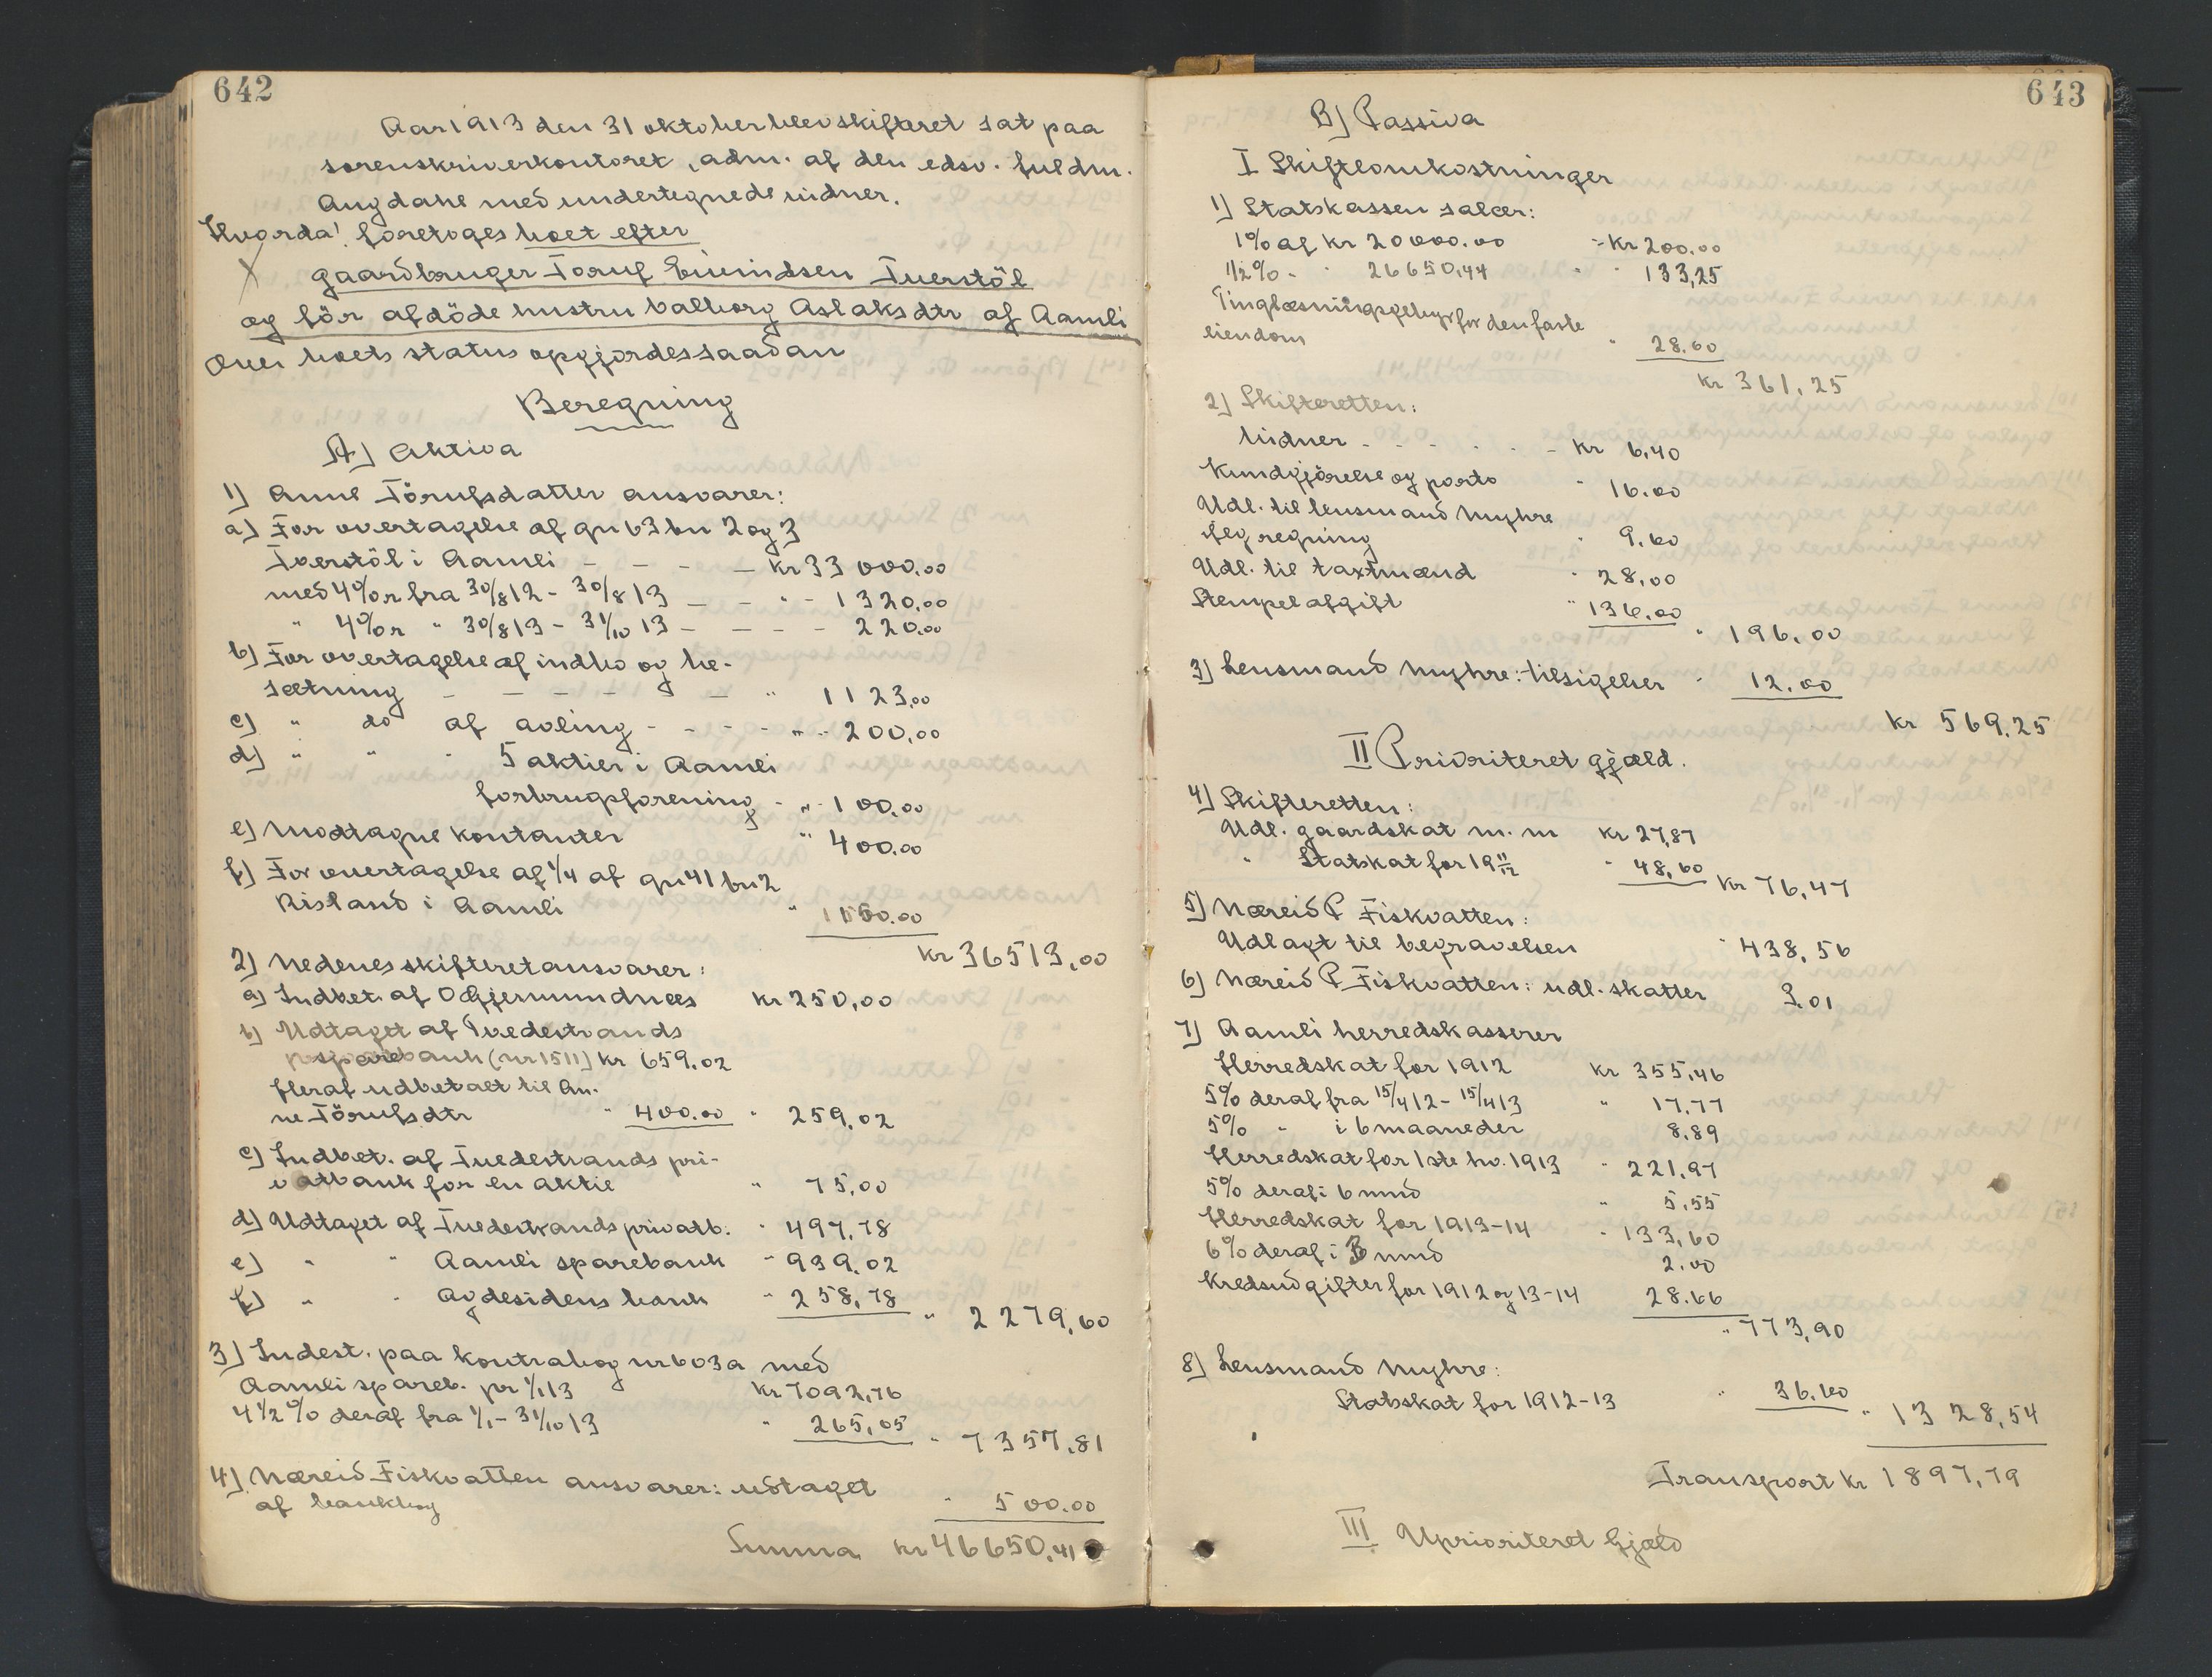 642
Aar 1913 den 31 oktober blev skifteret sat paa
sorenskriverkontoret, adm. af den edsv. fuldm.
Augdahl med undertegnede vidner.
Hvorda! foretoges boet efter
gaardbruger Toruf Eivindsen Tverstöl
og för afdöde hustru Valborg Aslaksdtr af Aamli
Over boets status opgjordes saadan
Beregning
A) Aktiva
1) Anne Törufsdatter ansvarer:
a) For overtagelse af gn 63 bn 2 og 3
Tverstöl i Aamli - - - - kr 33 000.00
med 4% r fra 30/8 12 - 30/8 13 - - " - 1 320.00
" 4% r " 30/8 13 - 31/10 13 - - - - 220.00
b) For overtagelse af indbo og be-
sætning - - - - - " 1123.00
c) " do af avling - - - - " - 200.00
d) " " " 5 aktier i Aamli
forbrugsforening - " - 100.00
e) Modtagne kontanter " 400.00
f) For overtagelse af 1/4 af gn 41 bn 2
Risland i Aamli " 150.00
kr 36513.00
2) Nedenes skifteret ansvarer:
a) Indbet. af O Gjermundnes kr 250,00
b) Udtaget af Tvedestrands
sparebank (nr 1511) kr 659.02
Heraf udbetalt til An-
ne Törufsdtr " 400.00 " 259,02
c) Indbet. af Tvedestrands pri-
vatbank for en aktie " 75,00
d) Udtaget af Tvedestrands privatb. " 497,78
e) " " Aamli sparebank " 939.02
f) " " Agdesidens bank " 258,78
" 2279,60
3) Indest. paa kontrabog nr 603a med
Aamli spareb. pr 1/1 13 kr 7092,76
4 1/2 % deraf fra 1/1 - 31/10 13 " 265,05
" 7357.81
4) Næreid Fiskvatten ansvarer: udtaget
af bankbog " 500.00
Summa kr 46650.41
643
B) Passiva
I Skifteomkostninger
1) Statskassen salær:
1% af kr 20000.00 - kr 200.00
1/2 % - " 26650,44 " " 133,25
Tinglæsningsgebyr for den faste
eiendom " 28.00
kr 361,25
2) Skifteretten:
Vidner - - - - - - kr 6,40
Kundgjörelse og porto " 16.00
Udl. til lensmand Myhre
flg regning " 9.60
Udl. til taxtmænd " 28,00
Stempelafgift " 136.00
" 196.00
3) Lensmand Myhre: tilsigelser " 12.00
kr 569.25
II Prioriteret gjæld.
4) Skifteretten:
Udl. gaardskat m.m kr 27,87
" Statskat for 19 11/12 " 48,60
kr 76,47
5) Næreid P Fiskvatten:
Udlagt til begravelsen " 438,56
6) Næreid P Fiskvatten: udl. skatter 3.01
7) Aamli herredskasserer
Herredskat for 1912 kr 355,46
5% deraf fra 15/4 12 - 15/4 13 " 17.77
5% " i 6 maaneder 8.89
Herredskat for 1ste hv. 1913 " 221,97
5% deraf i 6 mnd " 5,55
Herredskat for 1913-14 " 133,60
6% deraf i 3 mnd 2.00
Kredsudgifter for 1912 og 13-14 28.66
" 773,90
8) Lensmand Myhre:
Statsskat for 1912-13 " 36.60
" 1328,54
Transport kr 1897,79
III Uprioriteret Gjæld